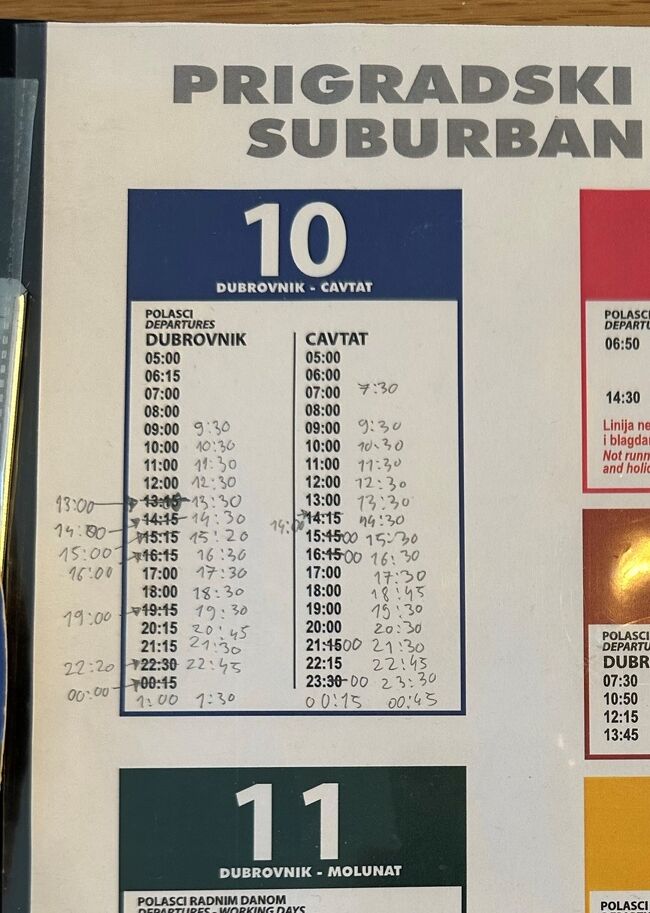 PRIGRADSKI
SUBURBAN
10
DUBROVNIK - CAVTAT
POLASCI
DEPARTURES
DUBROVNIK
05:00
06:15
07:00
08:00
09:00 9:30
10:00 10:30
11:00 11:30
12:00 12:30
13:00 13:15 13:30
14:00 14:15 14:30
15:00 15:15 15:20
16:00 16:15 16:30
17:00 17:30
18:00 18:30
19:00 19:15 19:30
20:15 20:45
21:15 21:30
22:20 22:30 22:45
00:00 00:15
1:00 1:30
CAVTAT
05:00
06:00
07:00 7:30
08:00
09:00 9:30
10:00 10:30
11:00 11:30
12:00 12:30
13:00 13:30
14:00 14:15 14:30
15:15 00 15:30
16:15 00 16:30
17:00 17:30
18:00 18:45
19:00 19:30
20:00 20:30
21:15 00 21:30
22:15 22:45
23:30 00 23:30
00:15 00:45
11
DUBROVNIK - MOLUNAT
POLASCI RADNIM DANOM
DEPARTURES - WORKING DAYS
POLASCI
06:50
14:30
Linija ne
i blagda
Not runn
and holid
POLASCI
DUBR
07:30
10:50
12:15
13:45
POLASCI